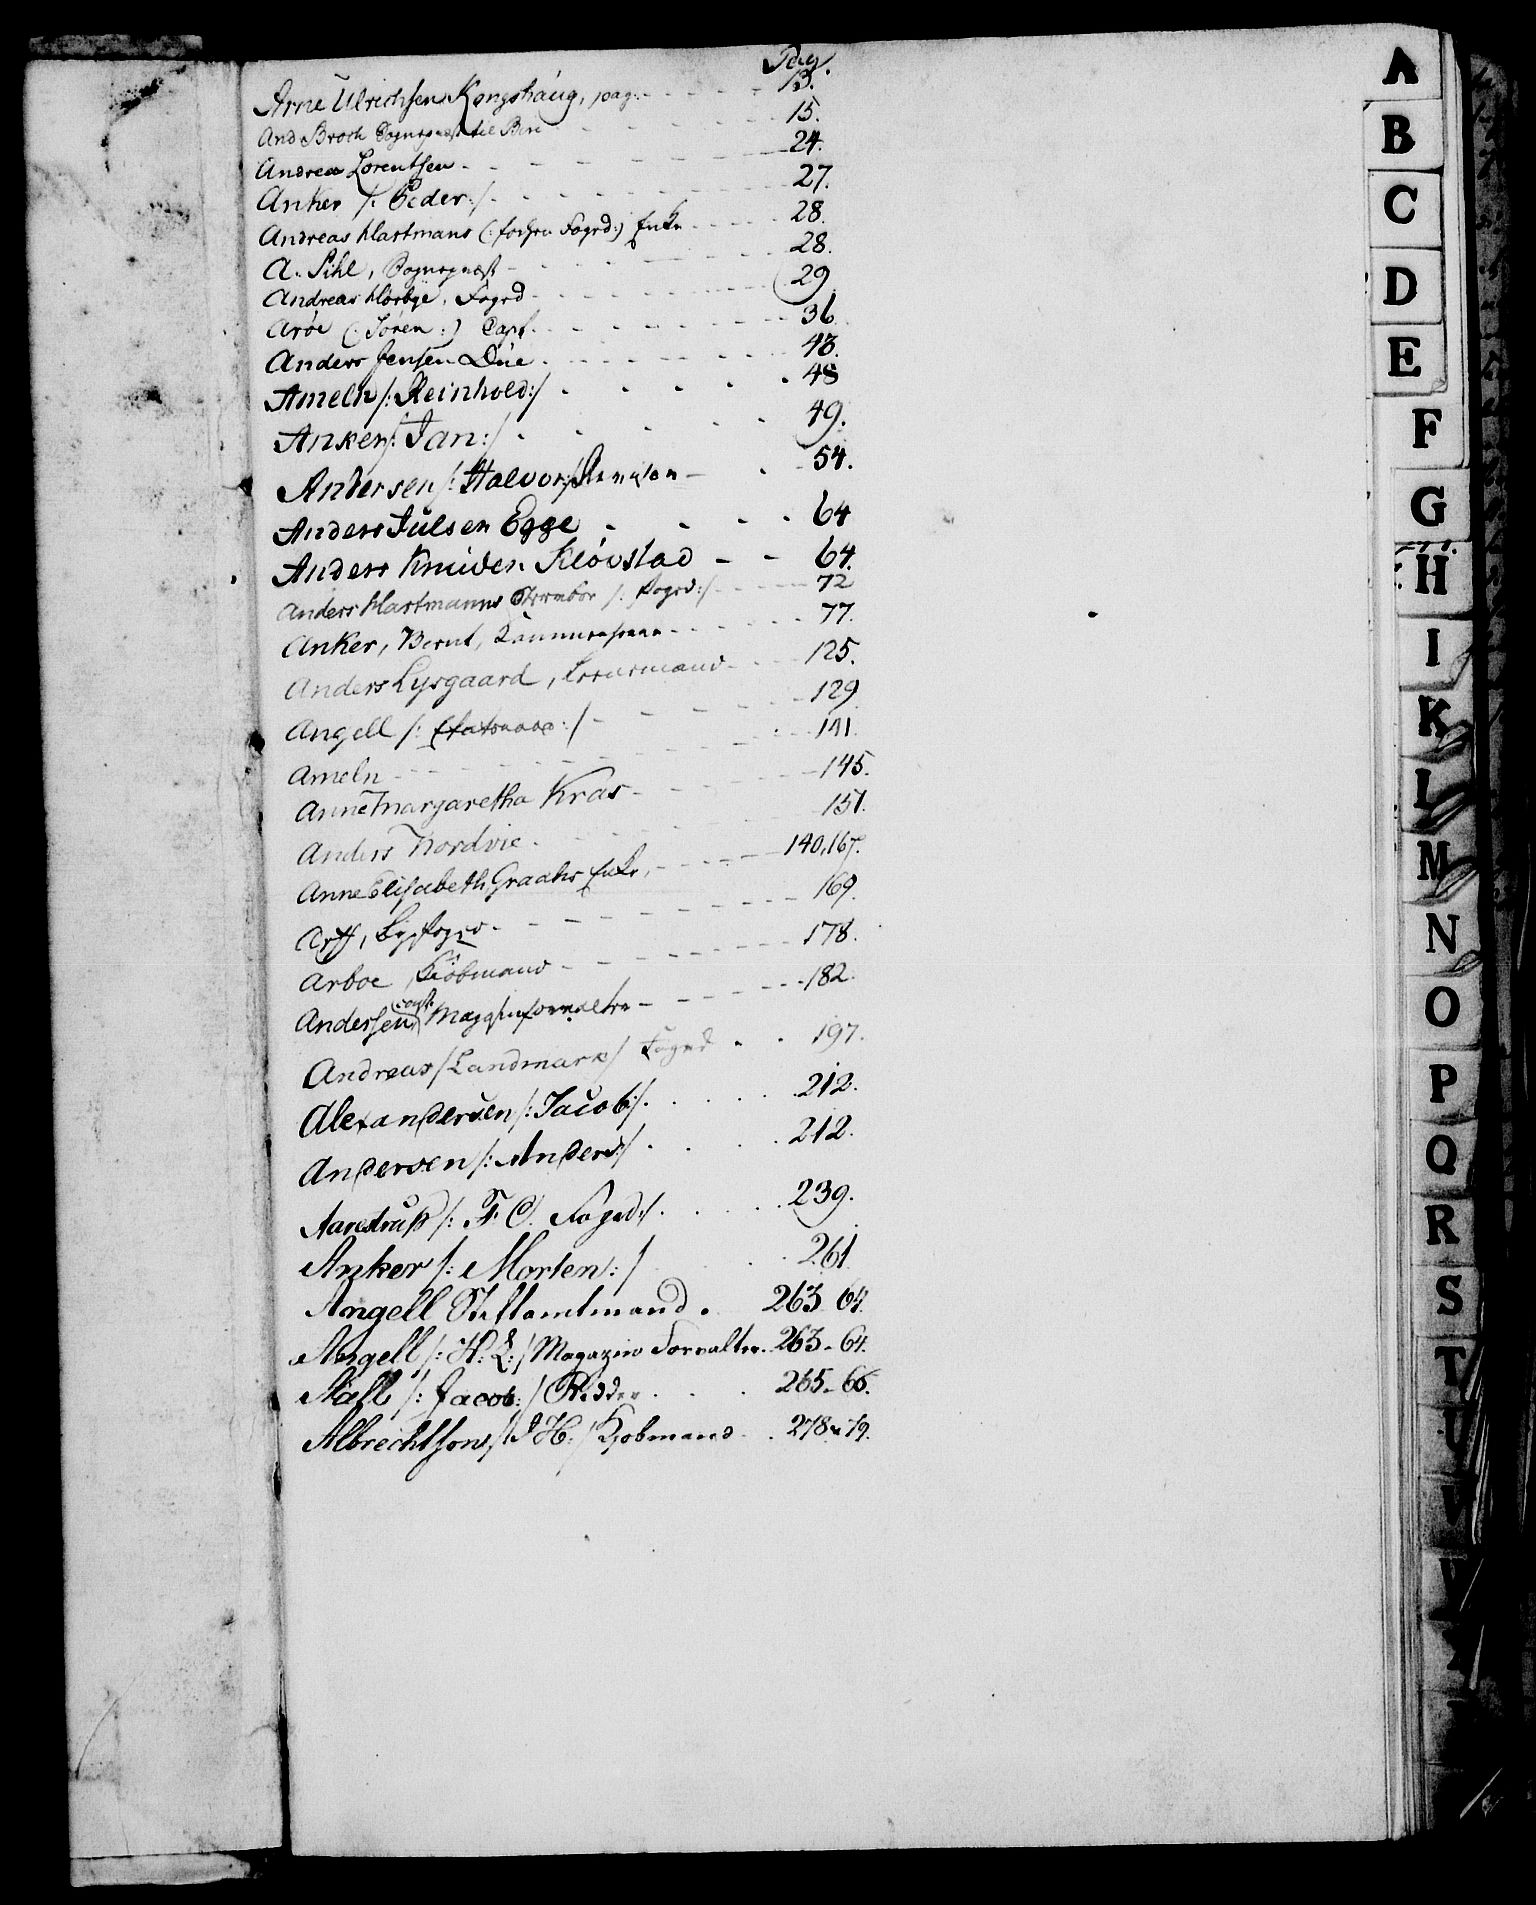 Pag.
Arne Ulrichsen Kongshaug, pag. 13.
And Broch Sognepræst til Biri 15.
Andrea Lorentsen 24.
Anker /: Peder :/ 27.
Andreas Hartmans (: forhen Foged :) Enke 28.
A. Pihl, Sognepræst 28.
Andreas Hørbye, Foged 29
Arøe (: Søren :) Capt. 36
Anders Jensen Due 43.
Ameln /: Reinhold :/ 48
Anker /: Jan :/ 49.
Andersen /: Halvor :/ 54.
Anders Julsen Egge 64
Anders Knudsen Kløvstad 64.
Anders Hartmanns /: Foged :/ 72
Anker, Bernt, Kammerherre 77.
Anders Lysgaard, 125.
Angell /: Etatsraad :/ 129
Ameln 141.
Anne Margaretha Kras 145.
Anders Nordvie 151.
Anne Elisabeth Graahs Enke, 140, 167.
Arff, Byefoged 169.
Arboe, Kiøbmand 178.
Andersen, const. Magazinforvalter 182.
Andreas /Landmark/ Foged 197.
Alexandersen /: Jacob :/ 212.
Andersen /: Anders :/ 212.
Aarestrup /: F. C. Foged :/ 239.
Anker /: Morten :/ 261
Angell Stiftamtmand. 263 64.
Angell /: H: L: / Magazin Forvalter. 263-64.
Aall /: Jacob: / Ridder 265-66.
Albrechtson, /: J H: / Kjøbmand 278-79.
A
B
C
D
E
F
G
H
I
K
L
M
N
O
P
Q
R
S
T
U
V